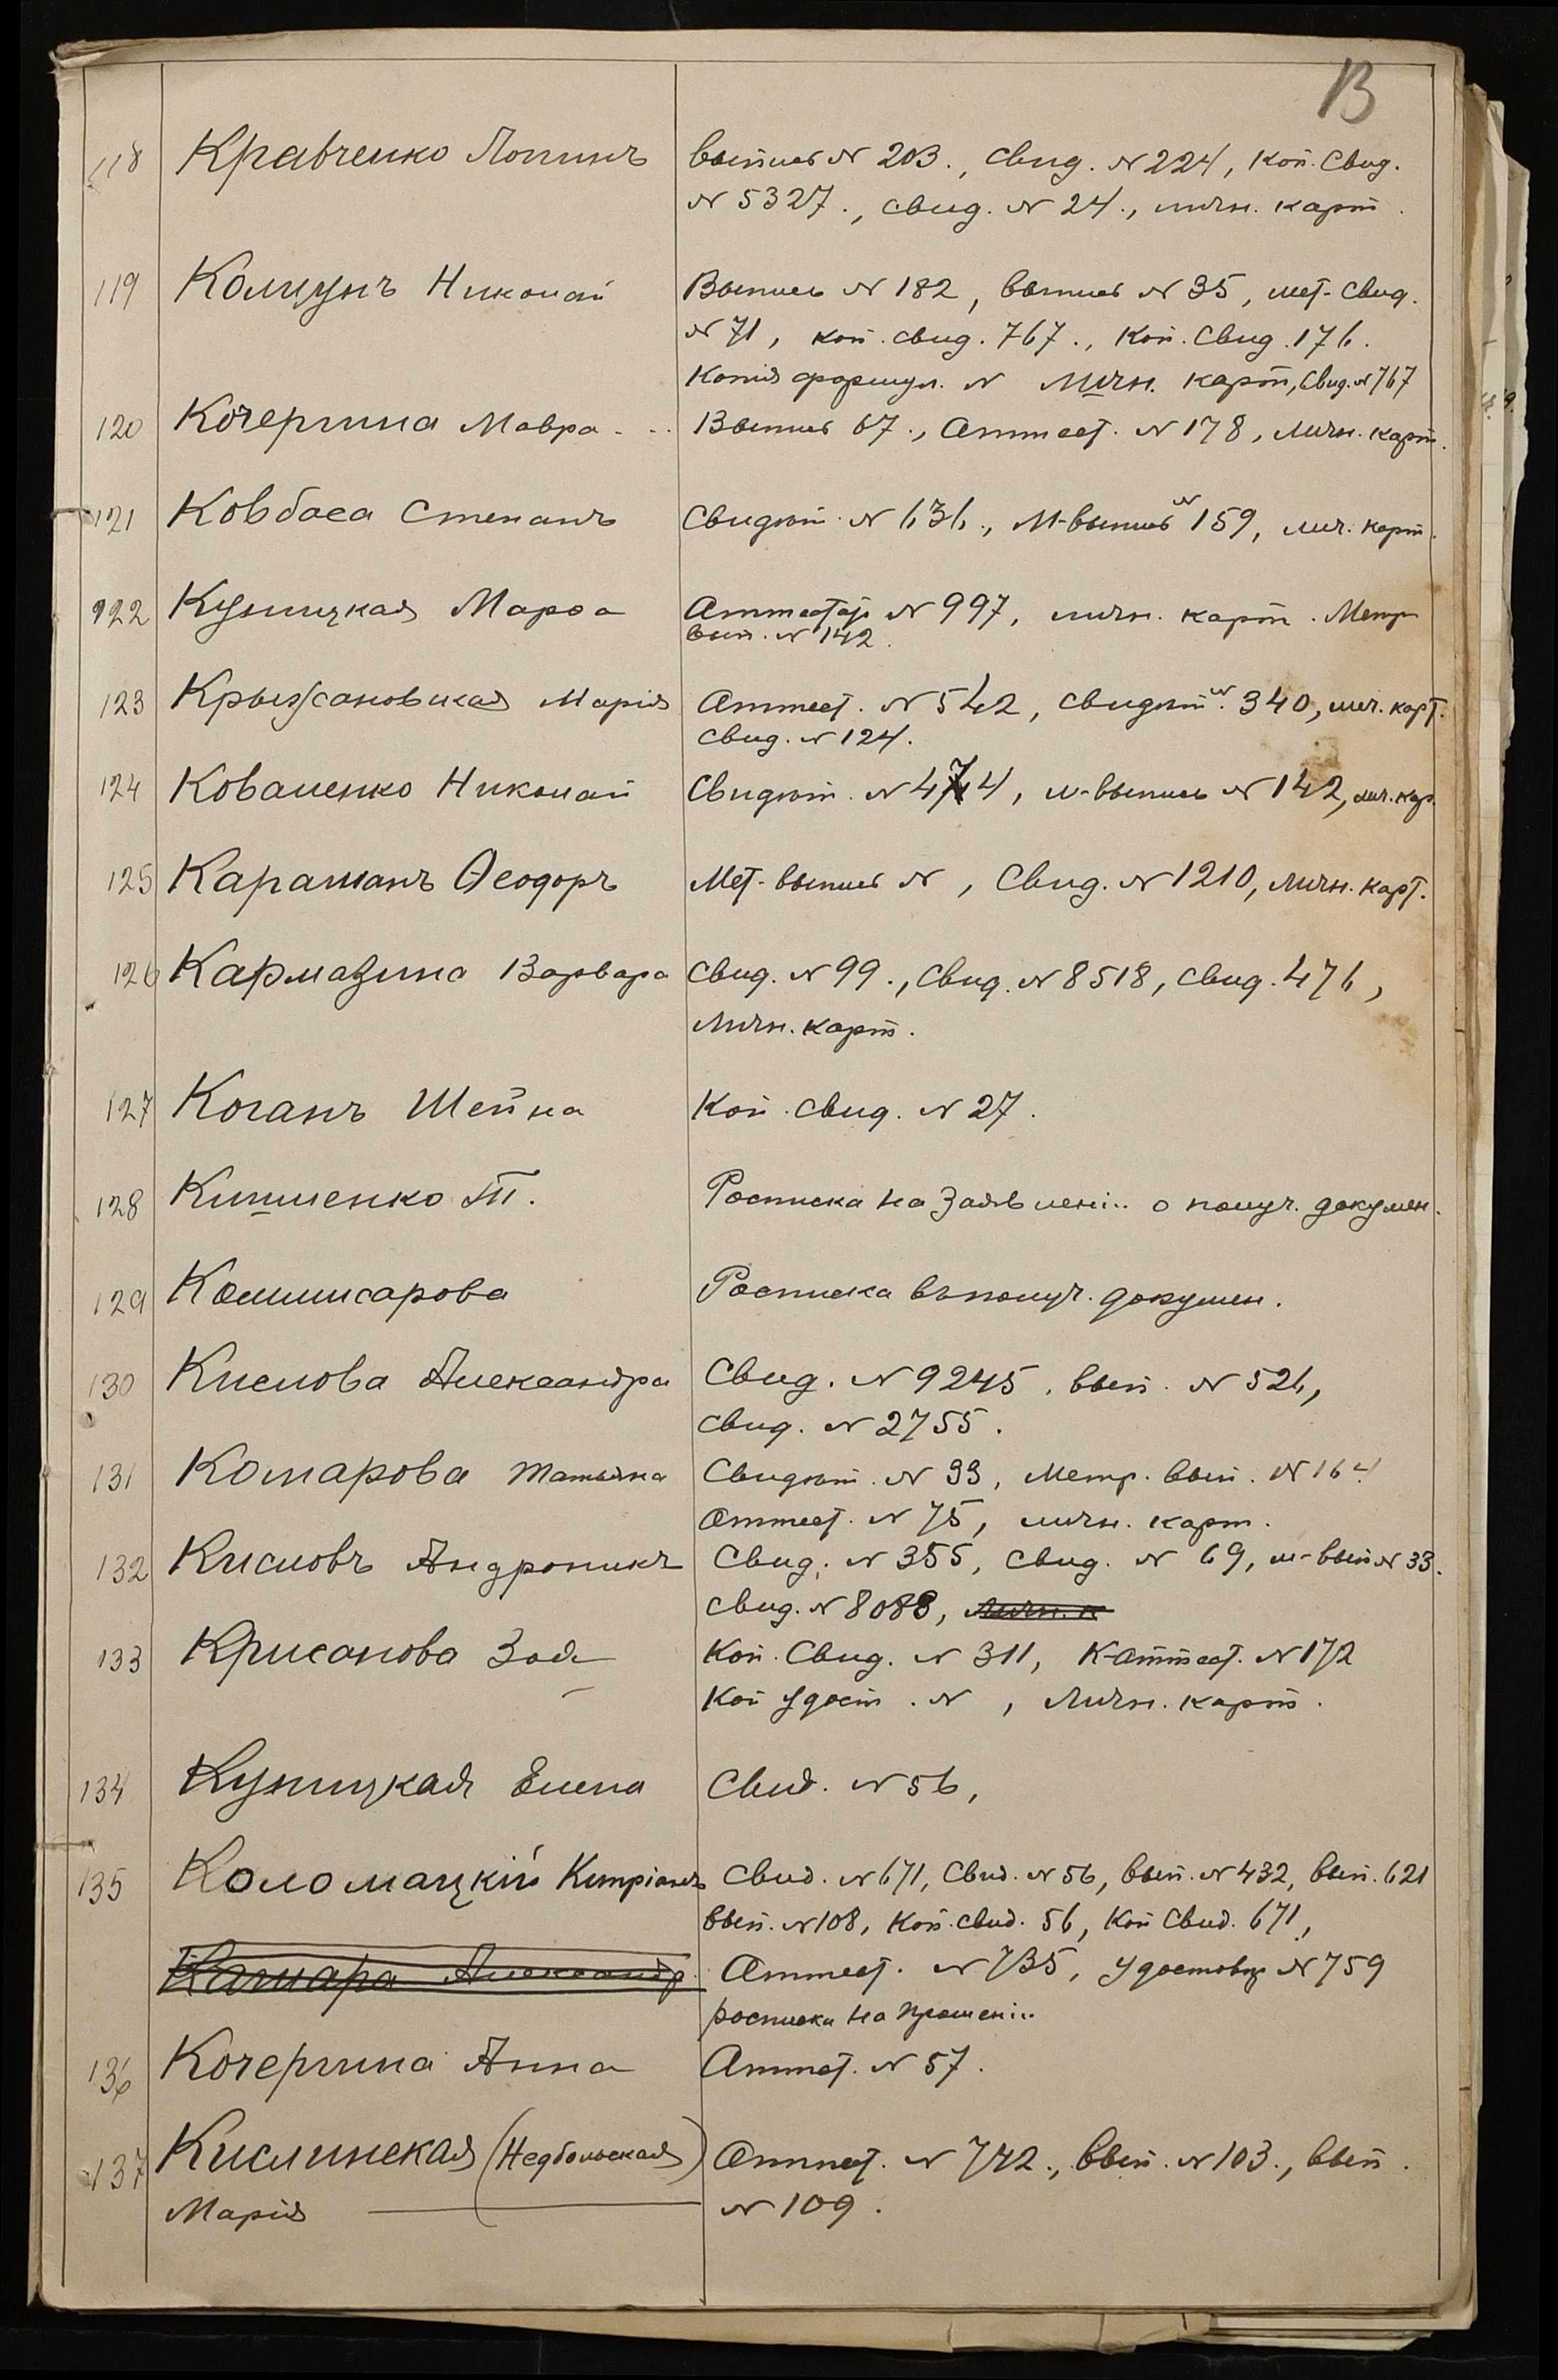 13
118 Кравченко Лонгинъ выпись № 203., Свид. № 224, Коп. Свид.
№ 5327., свид. № 24., личн. карт.
119 Колцунъ Николай Выпись № 182, выпись № 35, мет-Свид.
№ 71, коп. свид. 767., Коп. Свид. 176.
Копія формул. № Личн. карт, Свид. № 767
120 Кочергина Мавра - - - Выпись 67., Аттест. № 178, Личн. карт.
121 Ковбаса Степанъ Свидѣт. № 636., М-выпись № 159, лич. карт.
122 Куницкая Марѳа Аттестат № 997, личн. карт. Метр
вып. № 142.
123 Крыжановская Марія Аттест. № 542, свидѣт. № 340, лич. карт.
Свид. № 124.
124 Коваленко Николай Свидѣт. № 474, м-выпись № 142, лич. кар.
125 Караманъ Ѳеодоръ Мет-выпись № , Свид. № 1210, Личн. карт.
126 Кармазина Варвара Свид. № 99., Свид. № 8518, Свид. 476,
Личн. карт.
127 Коганъ Шейна Коп. Свид. № 27.
128 Кишленко Т. Росписка на Заявленіи о получ. докумен.
129 Коммисарова Росписка въ получ. докумен.
130 Кислова Александра Свид. № 9245, вып. № 526,
свид. № 2755.
131 Комарова Татьяна Свидѣт. № 33, Метр. вып. № 164
Аттест. № 75, личн. карт.
132 Кисловъ Андроникъ Свид. № 355, Свид. № 69, м-вып № 33.
Свид. № 8088, Личн. к
133 Крисанова Зоя Коп. Свид. № 311, К-аттест. № 172
Коп удост. № , Личн. карт.
134 Куницкая Елена Свид. № 56,
135 Коломацкій Кипріанъ Свид. № 671, Свид. № 56, вып. № 432, вып. 621
вып. № 108, Коп. свид. 56, Коп Свид. 671,
Александр. Аттест. № 735, Удостовер № 759
росписки на прошеніи
136 Кочергина Анна Аттест. № 57.
137 Кислинская (Недбольская) Аттест. № 742., вып. № 103., вып.
Марія № 109.